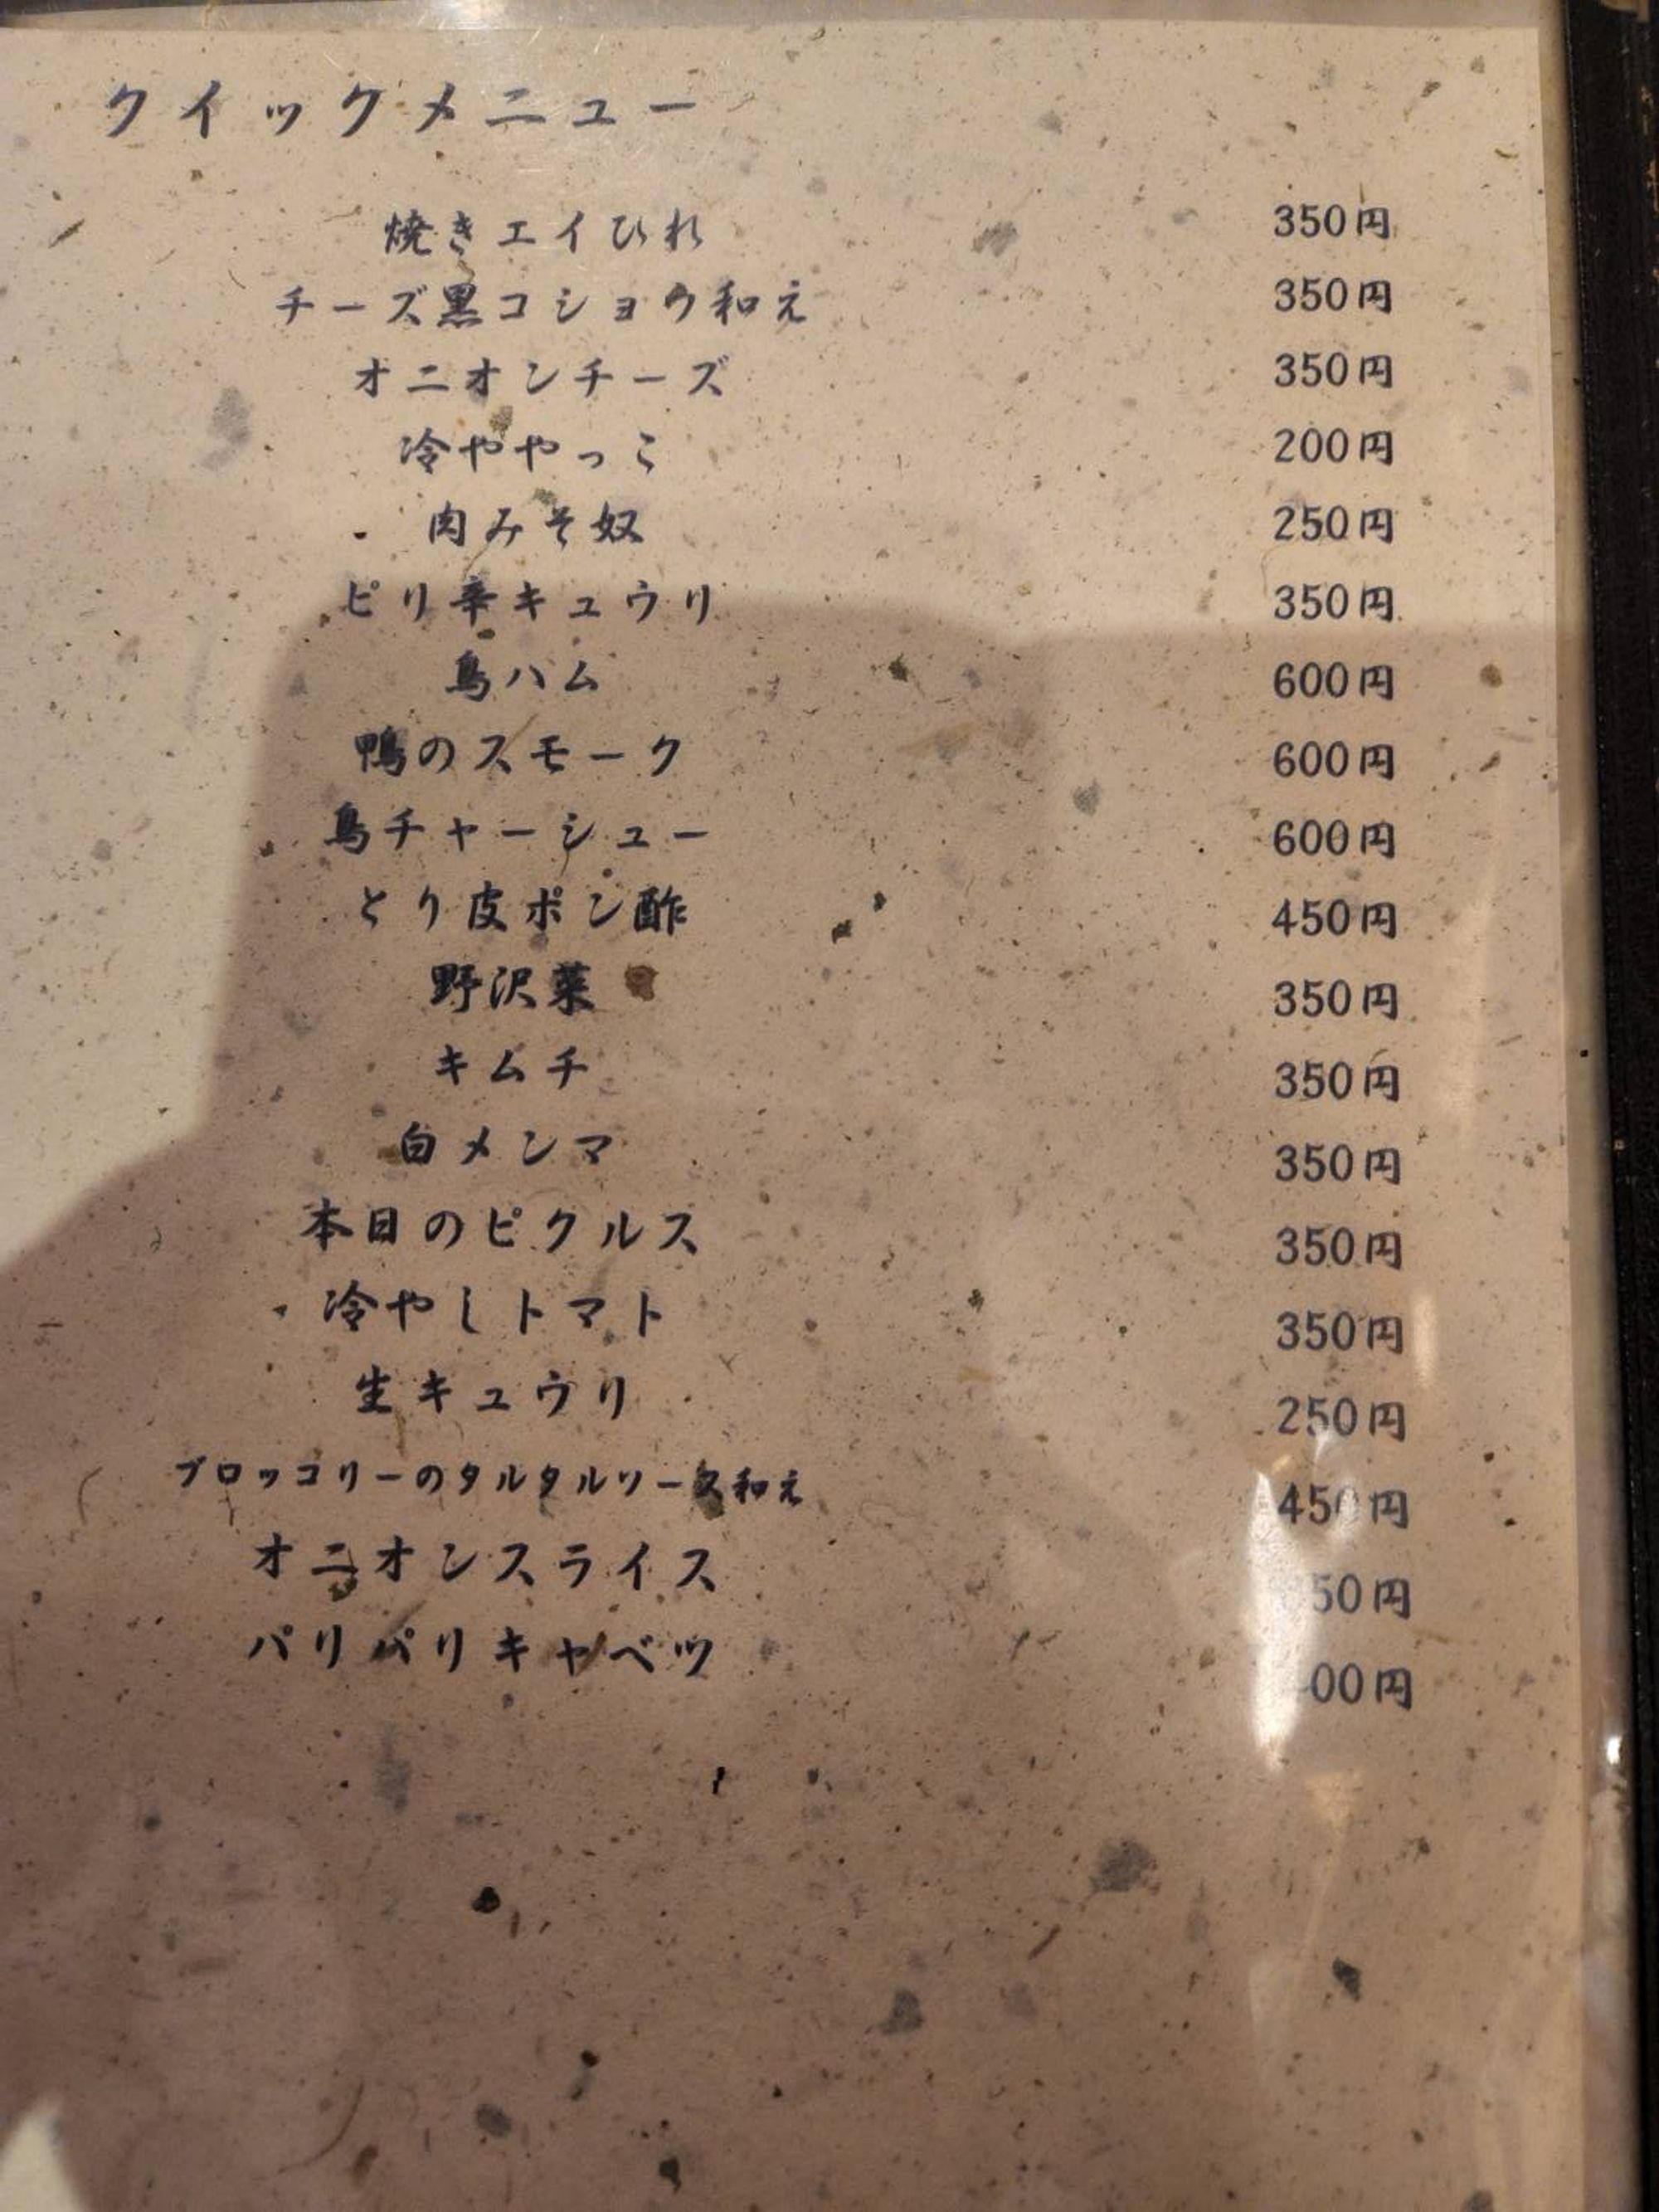 クイックメニュー
焼きエイひれ 350円
チーズ黒コショウ和え 350円
オニオンチーズ 350円
冷ややっこ 200円
肉みそ奴 250円
ピリ辛キュウリ 350円
鳥ハム 600円
鴨のスモーク 600円
鳥チャーシュー 600円
とり皮ポン酢 450円
野沢菜 350円
キムチ 350円
白メンマ 350円
本日のピクルス 350円
冷やしトマト 350円
生キュウリ 250円
ブロッコリーのタルタルソース和え 450円
オニオンスライス
パリパリキャベツ